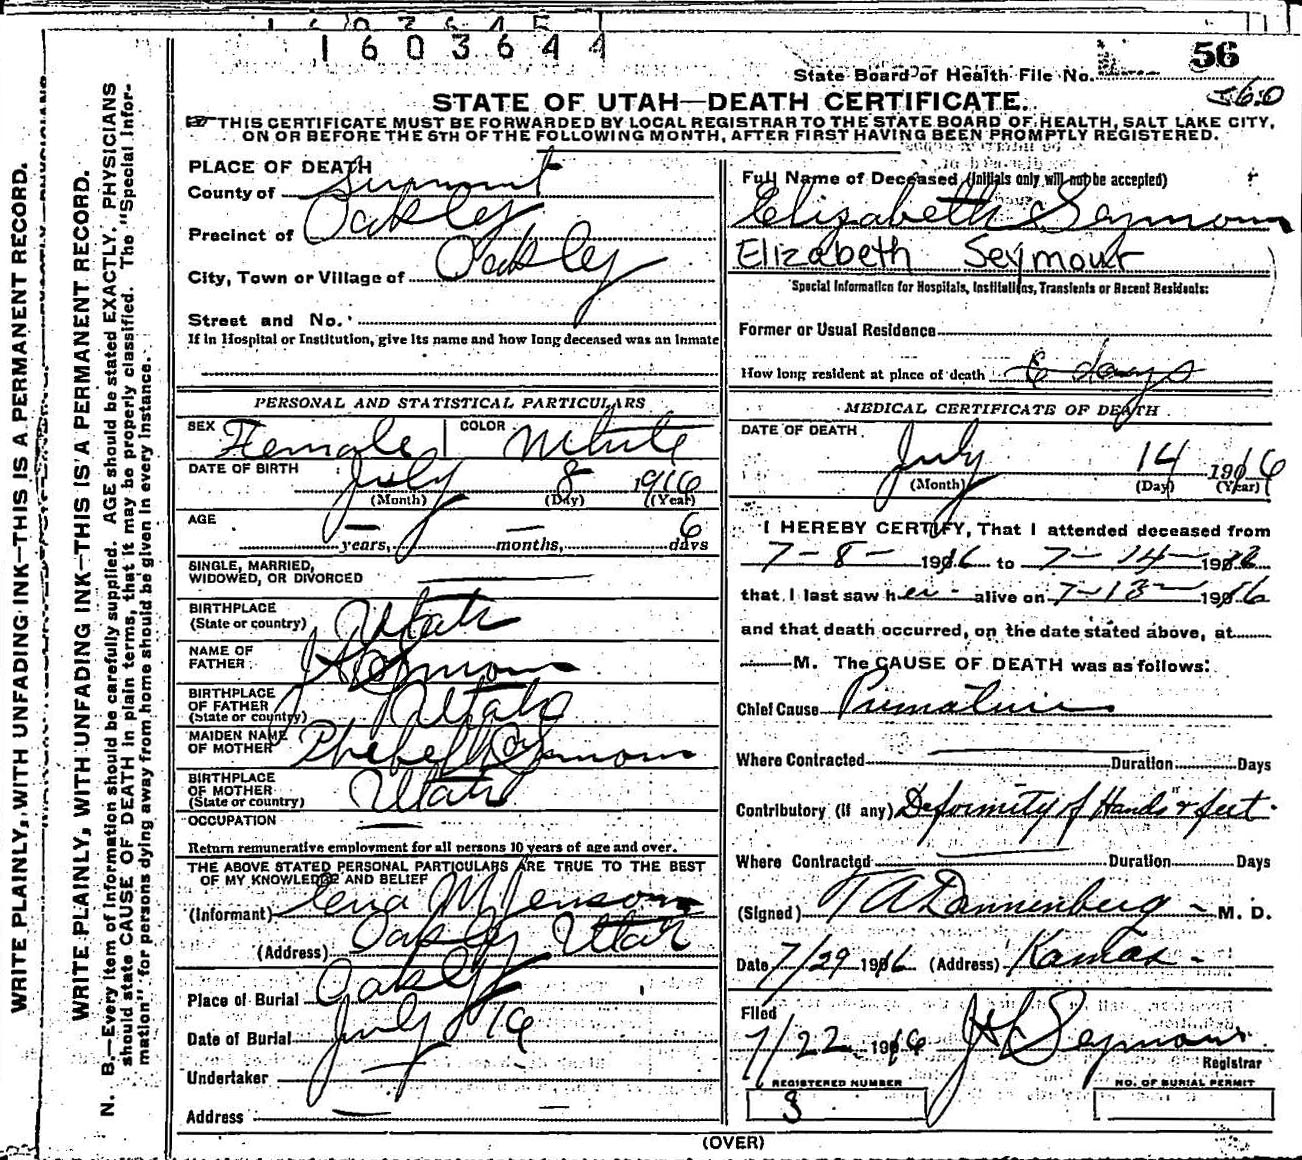 1603644
State Board of Health File No. 56
560
STATE OF UTAH—DEATH CERTIFICATE.
THIS CERTIFICATE MUST BE FORWARDED BY LOCAL REGISTRAR TO THE STATE BOARD OF HEALTH, SALT LAKE CITY,
ON OR BEFORE THE 5TH OF THE FOLLOWING MONTH, AFTER FIRST HAVING BEEN PROMPTLY REGISTERED.
WRITE PLAINLY, WITH UNFADING INK—THIS IS A PERMANENT RECORD.
WRITE PLAINLY, WITH UNFADING INK—THIS IS A PERMANENT RECORD.
N. B.—Every item of information should be carefully supplied. AGE should be stated EXACTLY. PHYSICIANS
should state CAUSE OF DEATH in plain terms, that it may be properly classified. The "Special Infor-
mation" for persons dying away from home should be given in every instance.
PLACE OF DEATH
County of Summit
Precinct of Oakley
City, Town or Village of Oakley
Street and No.
If in Hospital or Institution, give its name and how long deceased was an inmate
PERSONAL AND STATISTICAL PARTICULARS
SEX Female COLOR White
DATE OF BIRTH July 8 1916
(Month) (Day) (Year)
AGE — years, — months, 6 days
SINGLE, MARRIED,
WIDOWED, OR DIVORCED
BIRTHPLACE
(State or country) Utah
NAME OF
FATHER
BIRTHPLACE
OF FATHER
(State or country) Utah
MAIDEN NAME
OF MOTHER
BIRTHPLACE
OF MOTHER
(State or country) Utah
OCCUPATION —
Return remunerative employment for all persons 10 years of age and over.
THE ABOVE STATED PERSONAL PARTICULARS ARE TRUE TO THE BEST
OF MY KNOWLEDGE AND BELIEF
(Informant) M Jenson
(Address) Oakley Utah
Place of Burial Oakley
Date of Burial July
Undertaker —
Address —
Full Name of Deceased (Initials only will not be accepted)
Elizabeth Seymour
Elizabeth Seymour
Special Information for Hospitals, Institutions, Transients or Recent Residents:
Former or Usual Residence
How long resident at place of death 6 days
MEDICAL CERTIFICATE OF DEATH
DATE OF DEATH
July 14 1916
(Month) (Day) (Year)
I HEREBY CERTIFY, That I attended deceased from
7-8- 1916 to 7-14- 1916
that I last saw her alive on 7-13- 1916
and that death occurred, on the date stated above, at
M. The CAUSE OF DEATH was as follows:
Chief Cause
Where Contracted Duration Days
Contributory (if any) Deformity of Hands & feet.
Where Contracted Duration Days
(Signed) T A Dannenberg - M. D.
Date 7/29 1916 (Address) Kamas -
Filed
7/22 1916 J H Seymour
Registrar
REGISTERED NUMBER
3
NO. OF BURIAL PERMIT
(OVER)